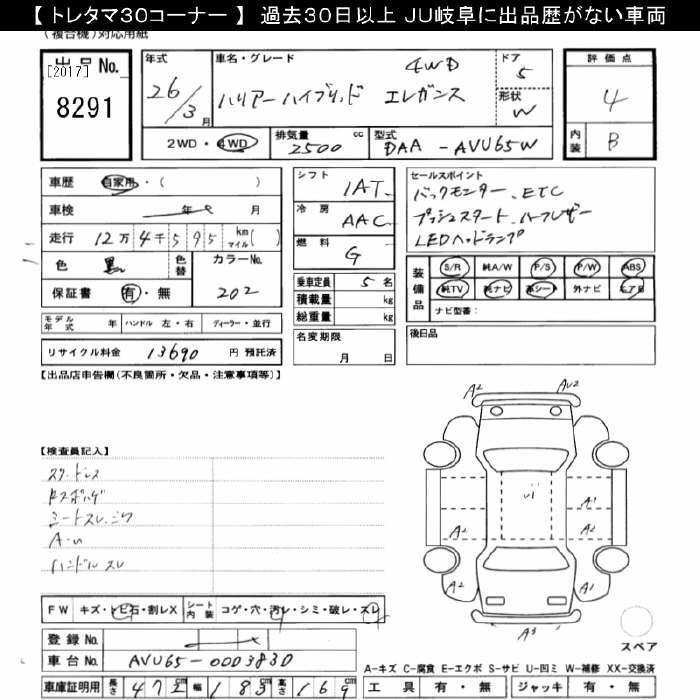 【 トレタマ30コーナー 】 過去30日以上 JU岐阜に出品歴がない車両
(複合機)対応用紙
出品No.
[2017]
8291
年式
26/3月
車名・グレード
4WD
ハリアーハイブリッド エレガンス
ドア
5
形状
W
評価点
4
内装
B
2WD・4WD
排気量
2500 cc
型式
DAA - AVU65W
車歴 自家用・( )
車検 年 月
走行 12万4千595 km マイル( )
色 黒 色替 カラーNo.
保証書 有・無 202
シフト
IAT
冷房
AAC
燃料
G
乗車定員 5名
積載量 kg
総重量 kg
セールスポイント
バックモニター、ETC
プッシュスタート、ハーフレザー
LEDヘッドランプ
装備品
S/R 純A/W P/S P/W ABS
純TV 純ナビ 革シート 外ナビ エアB
ナビ型番:
モデル年式 年 ハンドル 左・右 ディーラー・並行
リサイクル料金 13690 円 預託済
名変期限
月 日
後日品
【出品店申告欄(不良箇所・欠品・注意事項等)】
【検査員記入】
スタッドレス
シートスレ、シワ
A・U
ハンドルスレ
A2 AU2
U1
A1
A2 A2
A2 A1
A3
スペア
FW キズ・トビ石・割レX シート内装 コゲ・穴・汚レ・シミ・破レ・スレ
登録No.
車台No. AVU65-0003830
車庫証明用 長さ 472cm 幅 183cm 高さ 169cm
A-キズ C-腐食 E-エクボ S-サビ U-凹ミ W-補修 XX-交換済
工具 有・無 ジャッキ 有・無